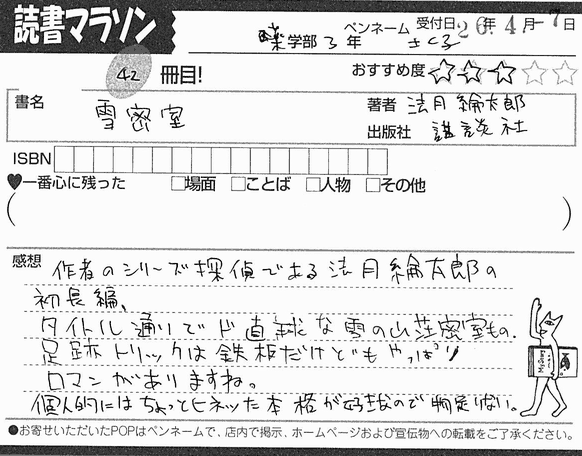 読書マラソン
学部 3 年
ペンネーム さくら
受付日 26年 4月 -7日
42 冊目!
おすすめ度 ★★★☆☆
書名 雪密室
著者 法月綸太郎
出版社 講談社
ISBN
♥一番心に残った □場面 □ことば □人物 □その他
( )
感想 作者のシリーズ探偵である法月綸太郎の
初長編、
タイトル通りでド直球な雪の山荘密室もの.
足跡トリックは鉄板だけどもやっぱり
ロマンがありますね。
個人的にはちょっとヒネった本格が好きなので物足りない。
●お寄せいただいたPOPはペンネームで、店内で掲示、ホームページおよび宣伝物への転載をご了承ください。